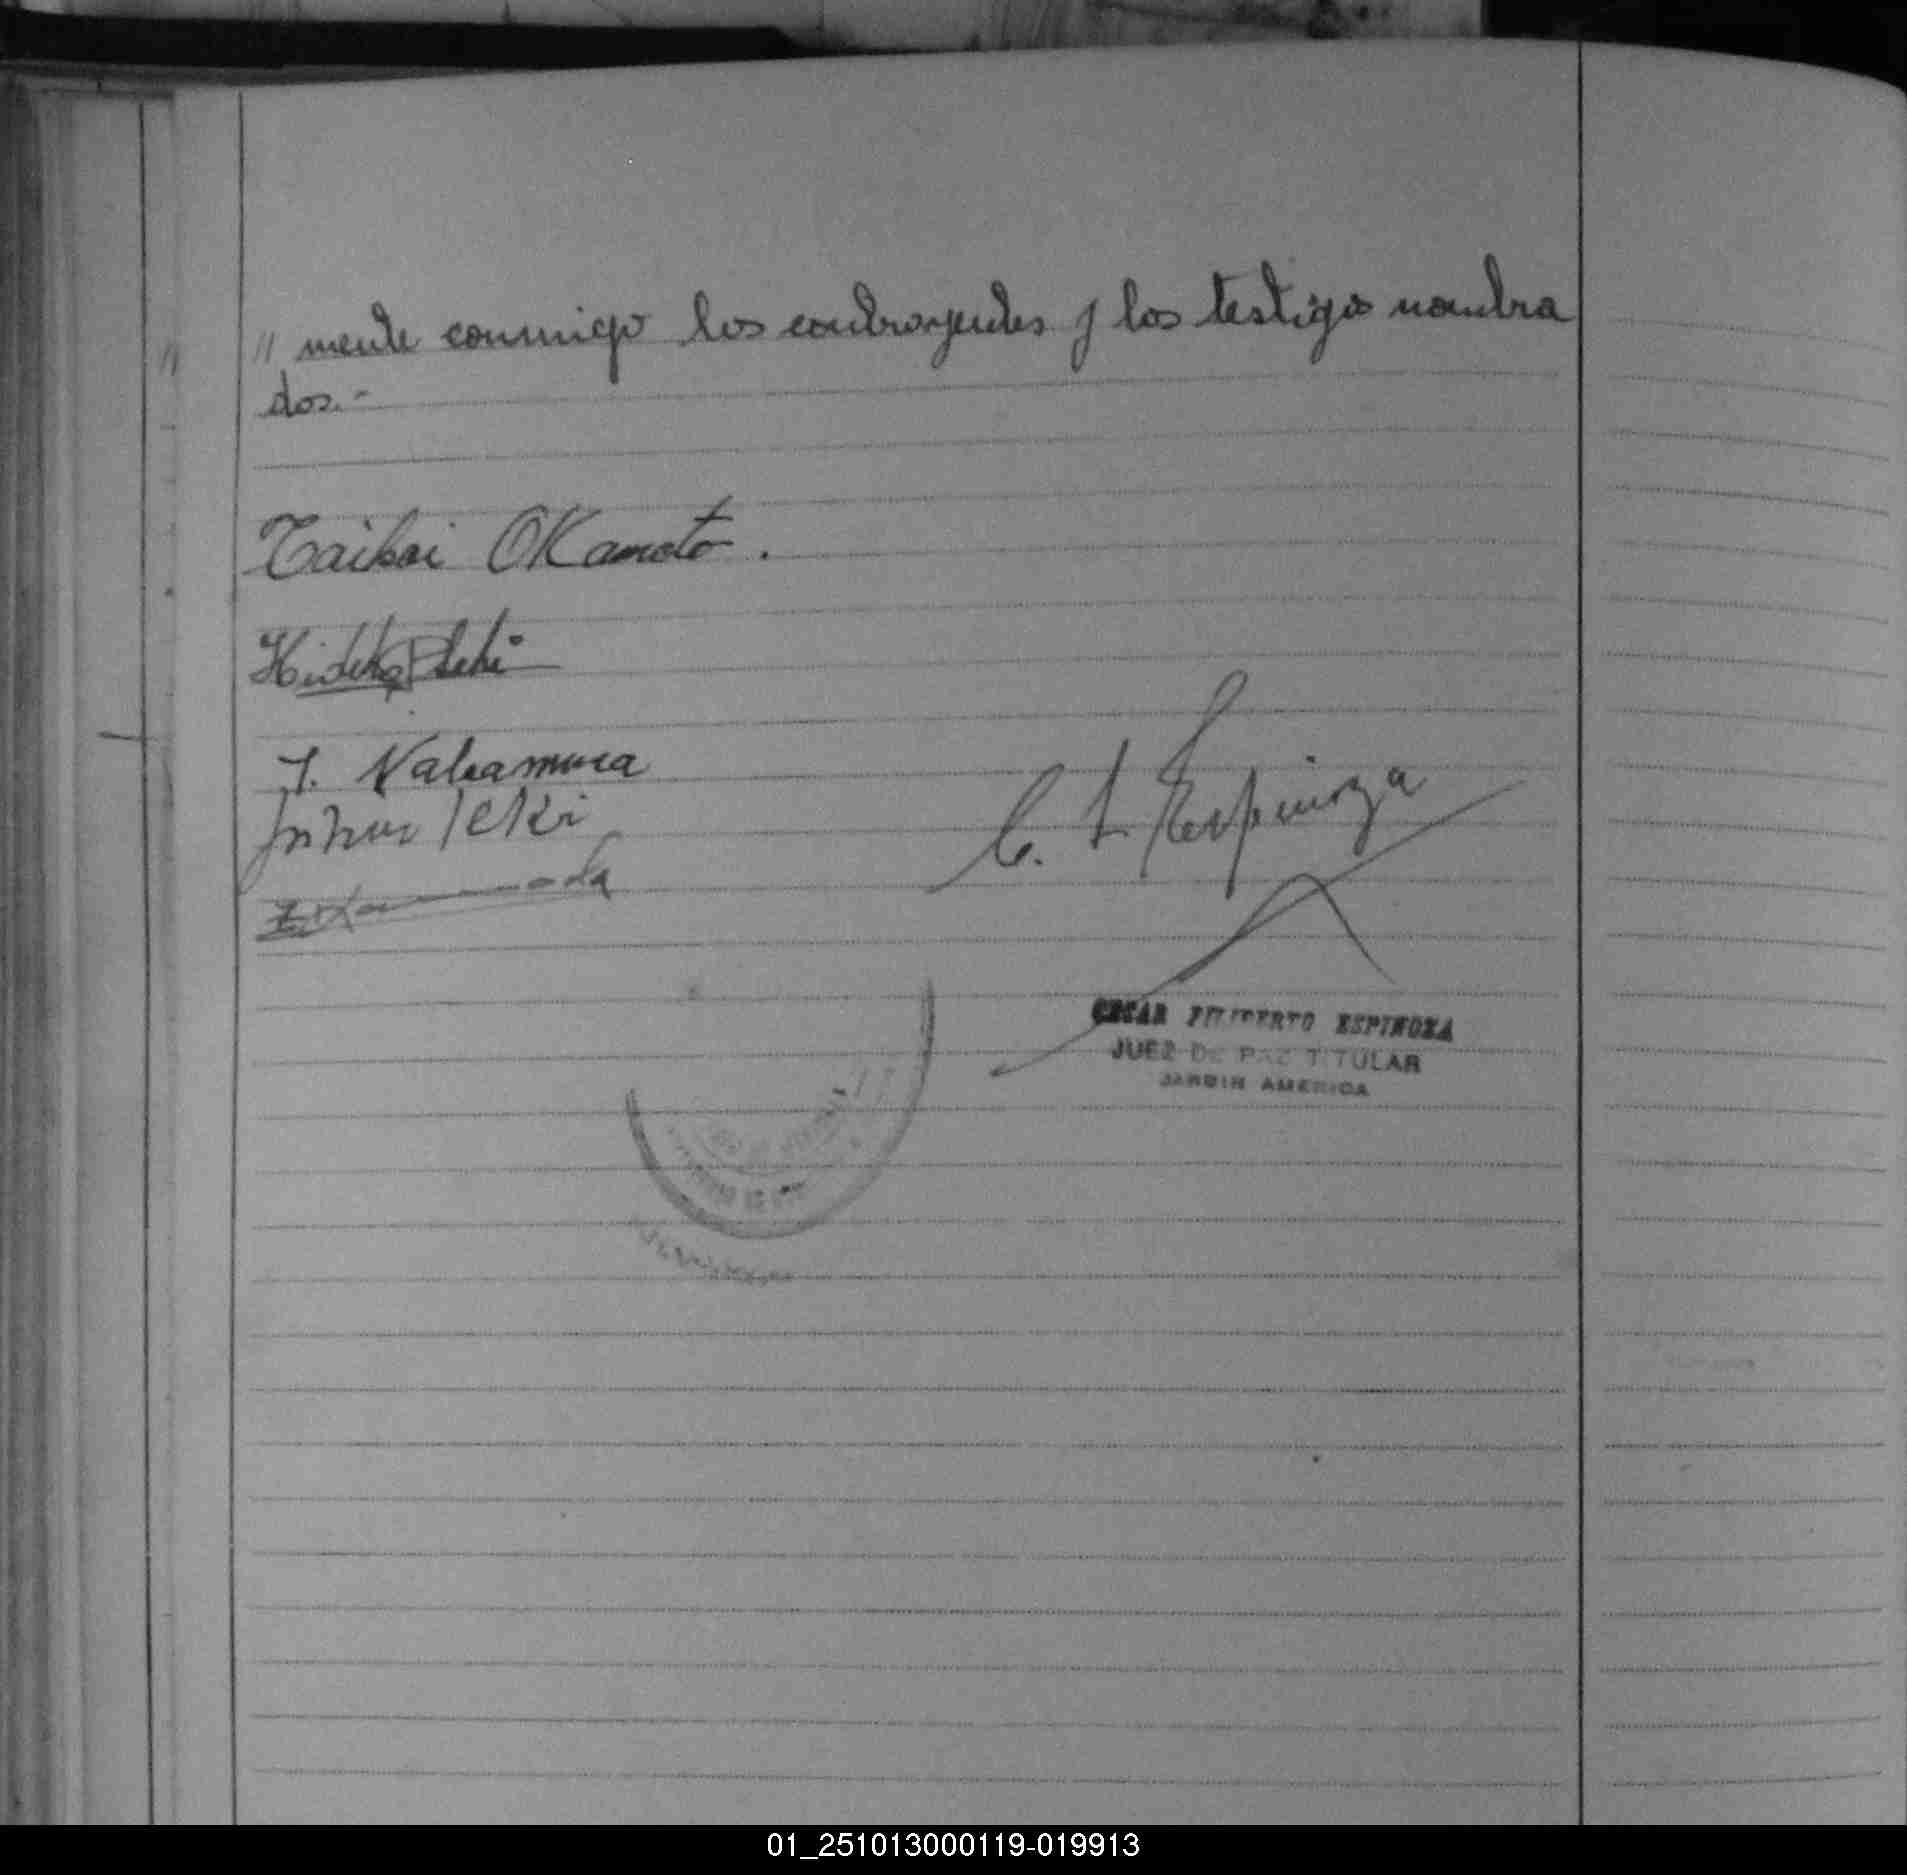 // mente conmigo los contrayentes y los testigos nombra
dos.-
Taikai OKamoto.
Hideko Seki
J. Nakamura
C. F. Espinoza
CESAR FILIBERTO ESPINOZA
JUEZ DE PAZ TITULAR
JARDIN AMERICA
01_251013000119-019913